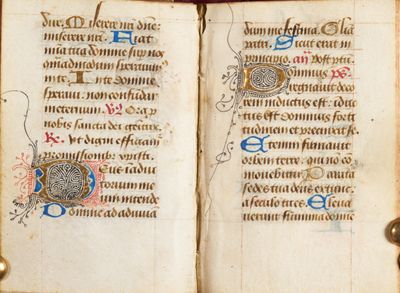 dne. Miserere nri dne:
miserere nri. Fiat
mia tua domine sup nos
quemadmodum speravim
in te. In te domine
speravi: non confundar
in eternum. V Ora p
nobis sancta dei genitrix.
R Ut digni efficiam
promissionib: xpisti.
Deus in adiu
torium me
um intende
Domine ad adiuva
dum me festina. Glia
patri. Sicut erat in
principio. an Post ptu
Dominus ps
regnavit deco
rem indutus est: idu
tus est dominus forti
tudinem et precinxit se.
Etenim firmavit
orbem terre: qui no co
movebitur. Parata
sedes tua deus ex tunc:
a seculo tu es. Eleva
verunt flumina domine